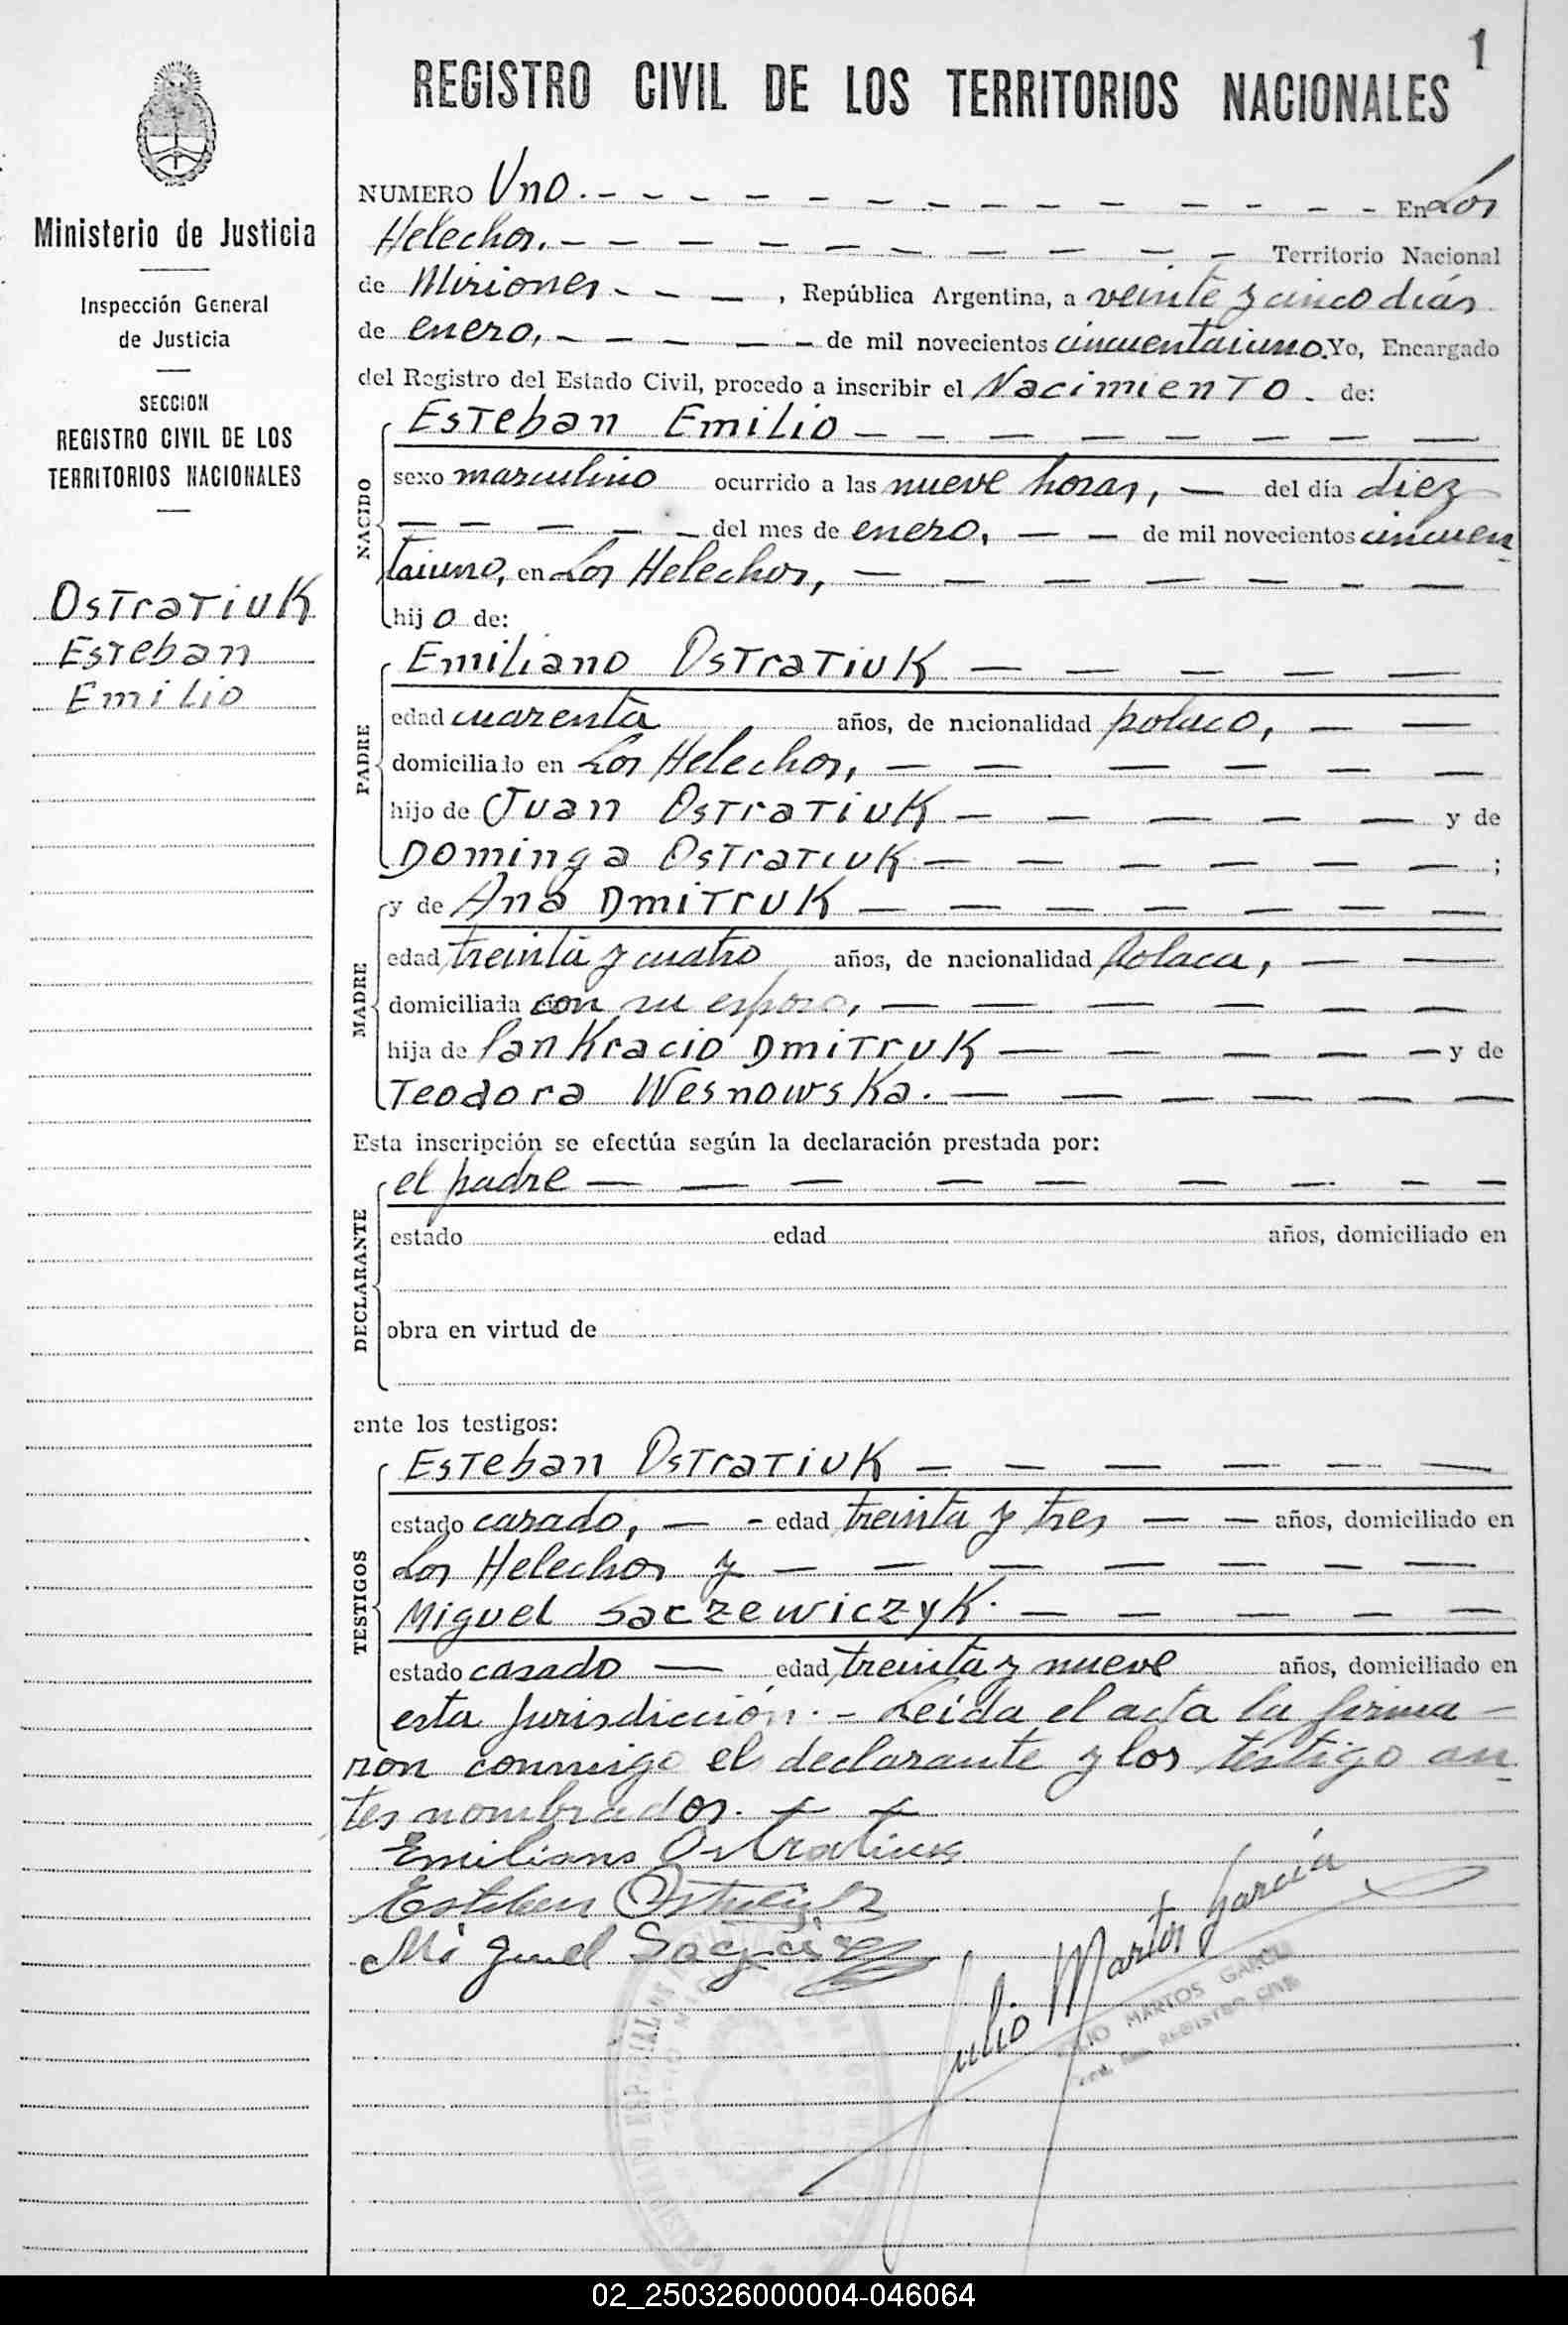 1
REGISTRO CIVIL DE LOS TERRITORIOS NACIONALES
Ministerio de Justicia
Inspección General
de Justicia
SECCION
REGISTRO CIVIL DE LOS
TERRITORIOS NACIONALES
Ostratiuk
Esteban
Emilio
NUMERO Uno. - - - - - - - - - - - - - - En Los
Helechos. - - - - - - - - - Territorio Nacional
de Misiones - - - , República Argentina, a veinte y cinco días
de enero, - - - - - de mil novecientos cincuentaiuno. Yo, Encargado
del Registro del Estado Civil, procedo a inscribir el Nacimiento. de:
NACIDO
Esteban Emilio - - - - - - - -
sexo masculino ocurrido a las nueve horas, - del día diez
- - - - - del mes de enero, - - de mil novecientos cincuen-
taiuno, en Los Helechos, - - - - - - - -
hij o de:
PADRE
Emiliano Ostratiuk - - - - - -
edad cuarenta años, de nacionalidad polaco, - -
domiciliado en Los Helechos, - - - - - - -
hijo de Juan Ostratiuk - - - - - y de
Dominga Ostratiuk - - - - - - - ;
MADRE
y de Ana Dmitruk - - - - - - - -
edad treinta y cuatro años, de nacionalidad polaca, - -
domiciliada con su esposo, - - - - - - -
hija de Pankracio Dmitruk - - - - - y de
Teodora Wesnowska. - - - - - - -
Esta inscripción se efectúa según la declaración prestada por:
DECLARANTE
el padre - - - - - - - - -
estado edad años, domiciliado en
obra en virtud de
ante los testigos:
TESTIGOS
Esteban Ostratiuk - - - - - -
estado casado, - - edad treinta y tres - - años, domiciliado en
Los Helechos y - - - - - - -
Miguel Saczewiczyk. - - - - -
estado casado - edad treinta y nueve años, domiciliado en
esta jurisdicción. - Leída el acta la firma-
ron conmigo el declarante y los testigo an-
tes nombrados.
Emiliano Ostratiuk
Esteban
Miguel
Julio Martos García
JULIO MARTOS GARCIA
REGISTRO CIVIL
02_250326000004-046064